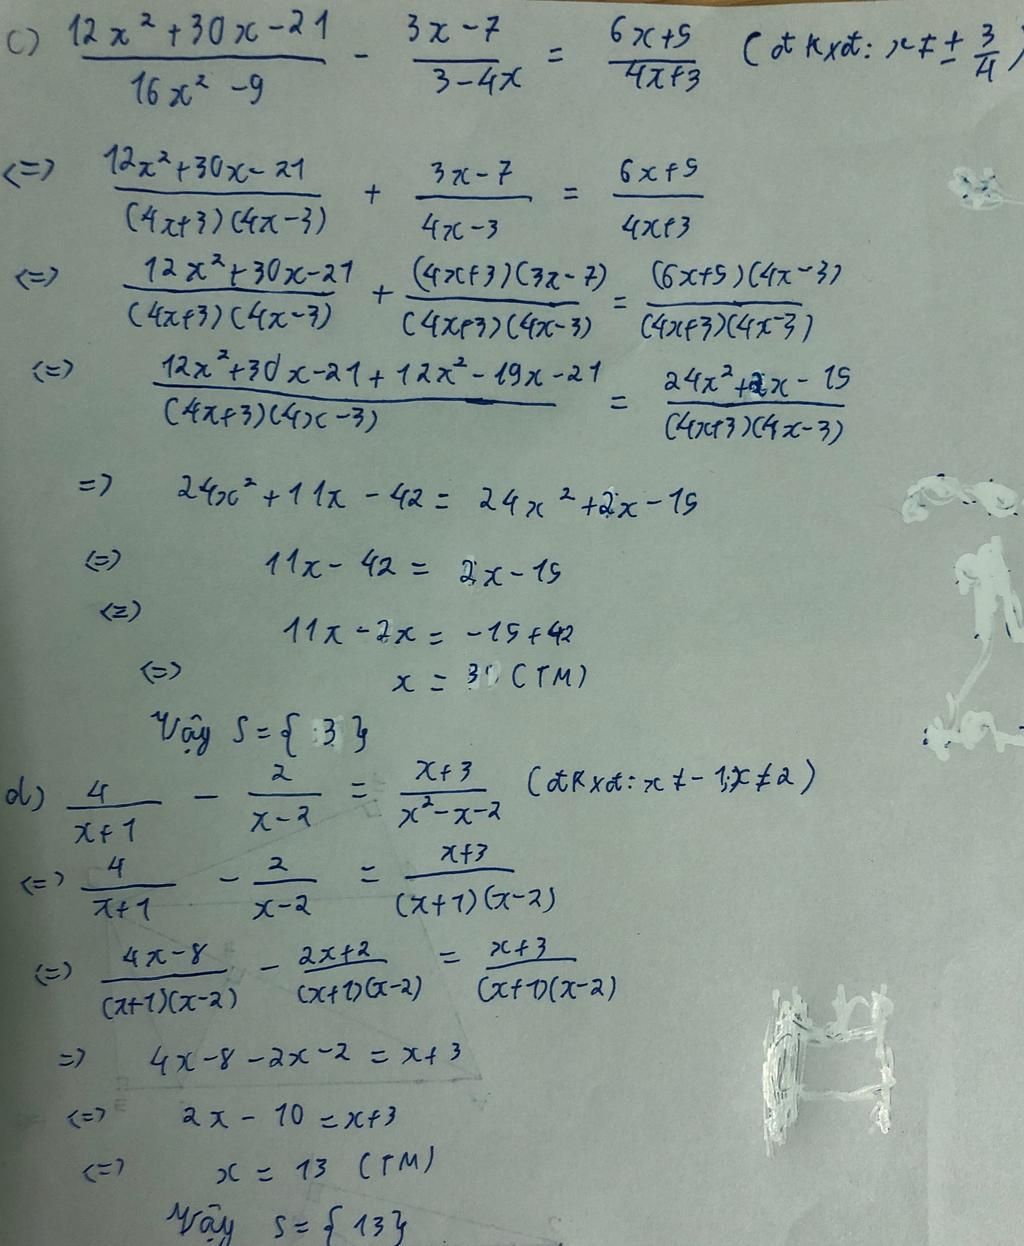 c) (12x² + 30x - 21)/(16x² - 9) - (3x - 7)/(3 - 4x) = (6x + 5)/(4x + 3) (đkxđ: x ≠ ± 3/4)
<=> (12x² + 30x - 21)/((4x + 3)(4x - 3)) + (3x - 7)/(4x - 3) = (6x + 5)/(4x + 3)
<=> (12x² + 30x - 21)/((4x + 3)(4x - 3)) + ((4x + 3)(3x - 7))/((4x + 3)(4x - 3)) = ((6x + 5)(4x - 3))/((4x + 3)(4x - 3))
<=> (12x² + 30x - 21 + 12x² - 19x - 21)/((4x + 3)(4x - 3)) = (24x² + 2x - 15)/((4x + 3)(4x - 3))
=> 24x² + 11x - 42 = 24x² + 2x - 15
<=> 11x - 42 = 2x - 15
<=> 11x - 2x = -15 + 42
<=> x = 3 (TM)
Vậy S = { 3 }
d) 4/(x + 1) - 2/(x - 2) = (x + 3)/(x² - x - 2) (đkxđ: x ≠ - 1; x ≠ 2)
<=> 4/(x + 1) - 2/(x - 2) = (x + 3)/((x + 1)(x - 2))
<=> (4x - 8)/((x + 1)(x - 2)) - (2x + 2)/((x + 1)(x - 2)) = (x + 3)/((x + 1)(x - 2))
=> 4x - 8 - 2x - 2 = x + 3
<=> 2x - 10 = x + 3
<=> x = 13 (TM)
Vậy S = { 13 }